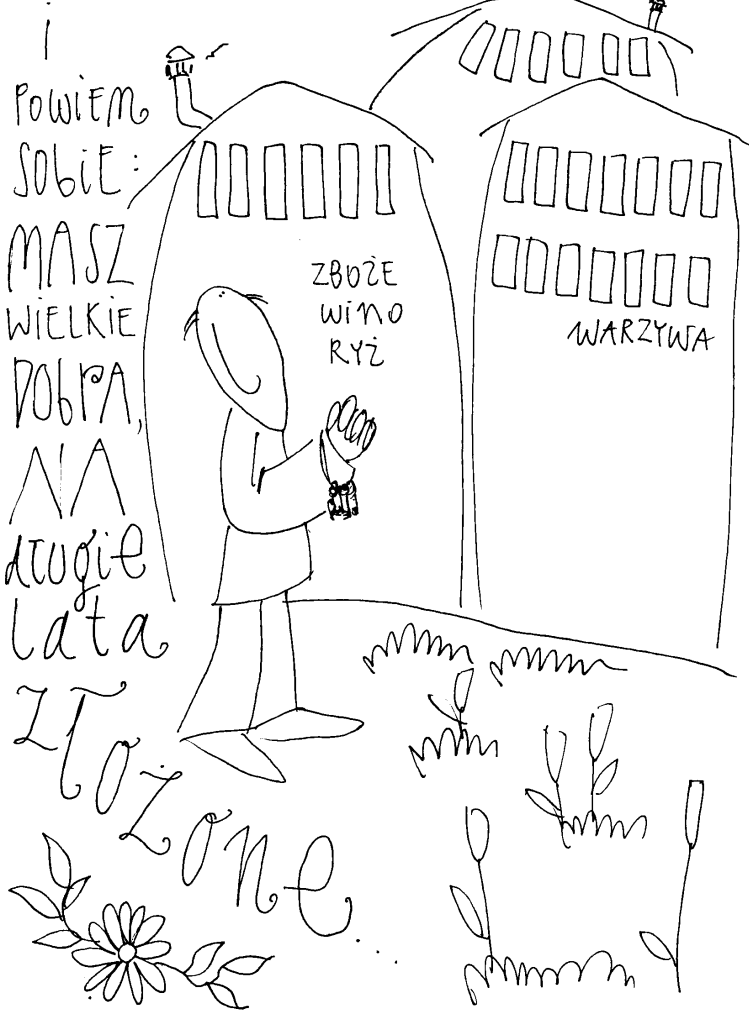 i
POWIEM
SOBIE:
MASZ
WIELKIE
DOBRA,
NA
długie
lata
złożone...
ZBOŻE
WINO
RYŻ
WARZYWA